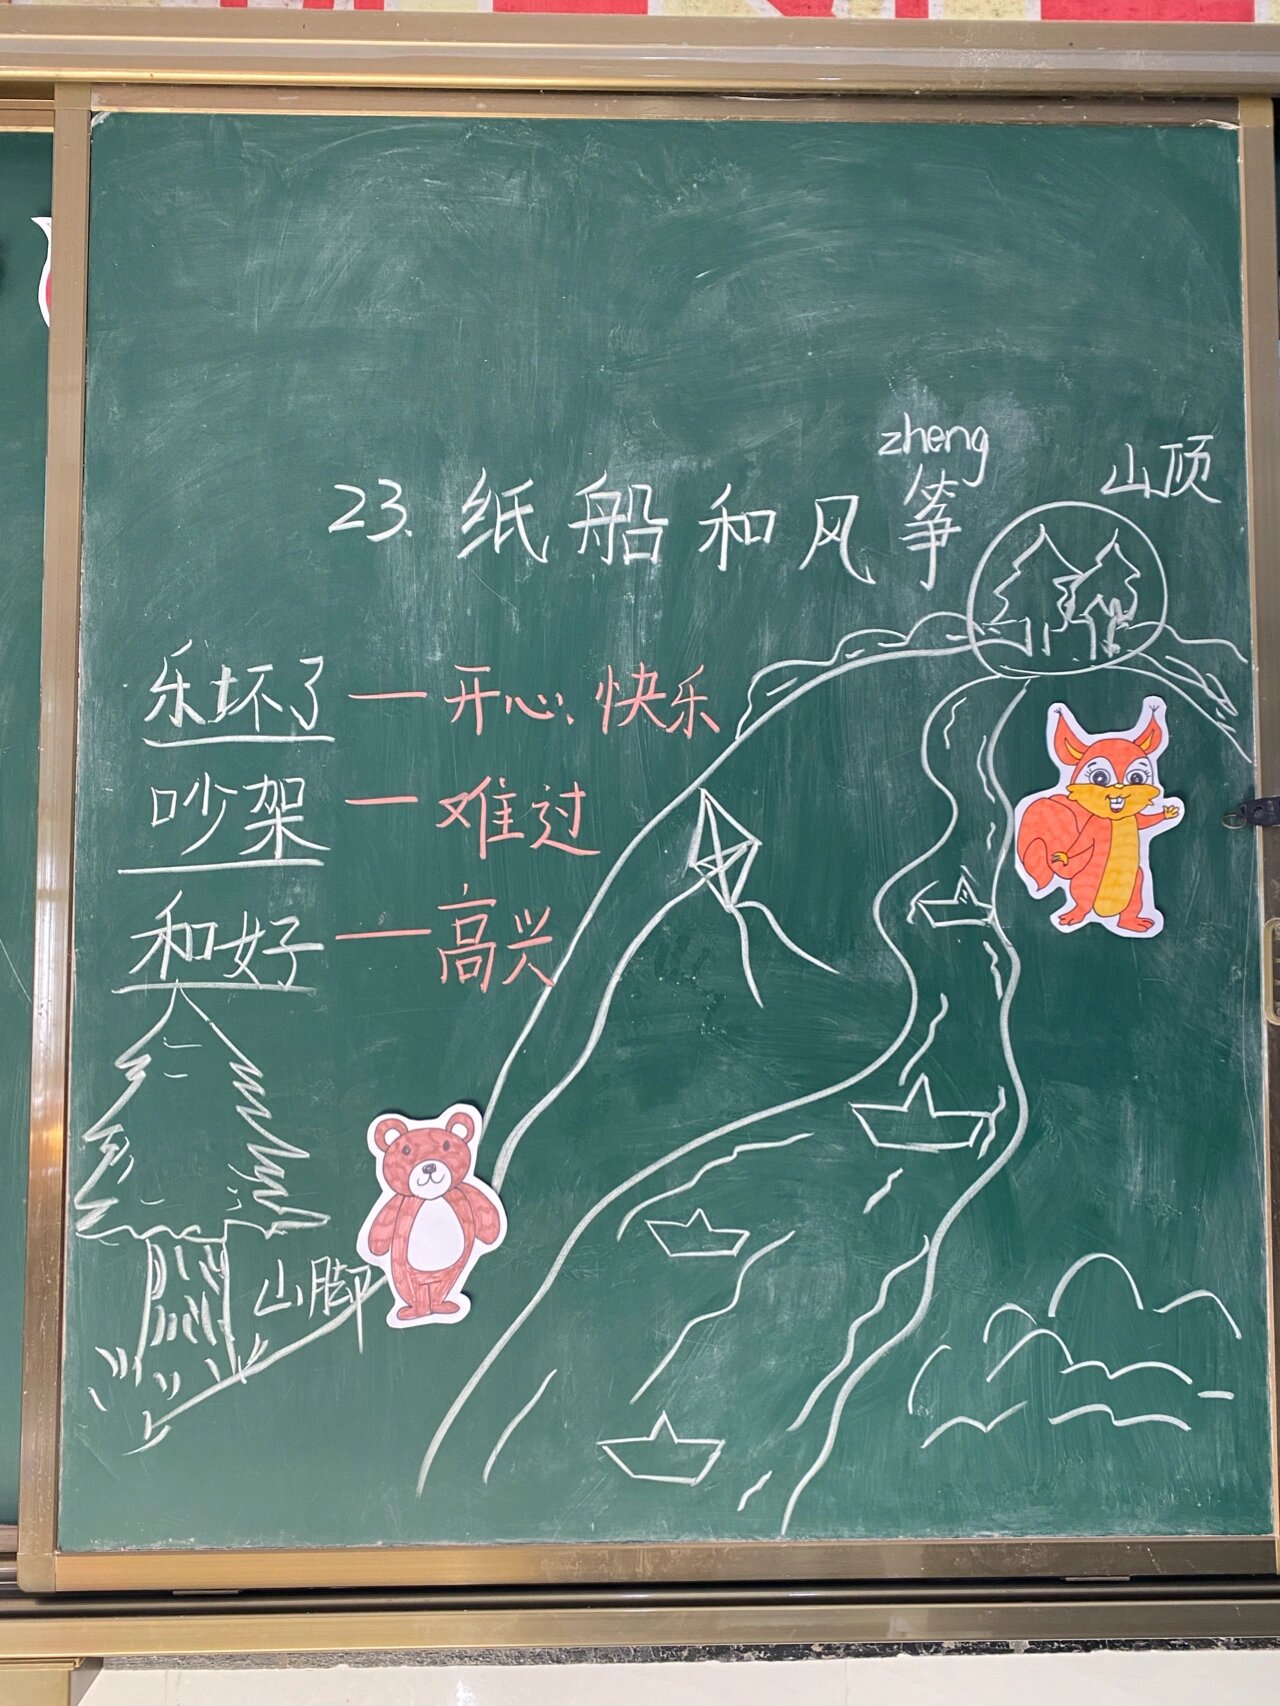 zheng
23. 纸船和风筝
山顶
乐坏了 — 开心、快乐
吵架 — 难过
和好 — 高兴
山脚